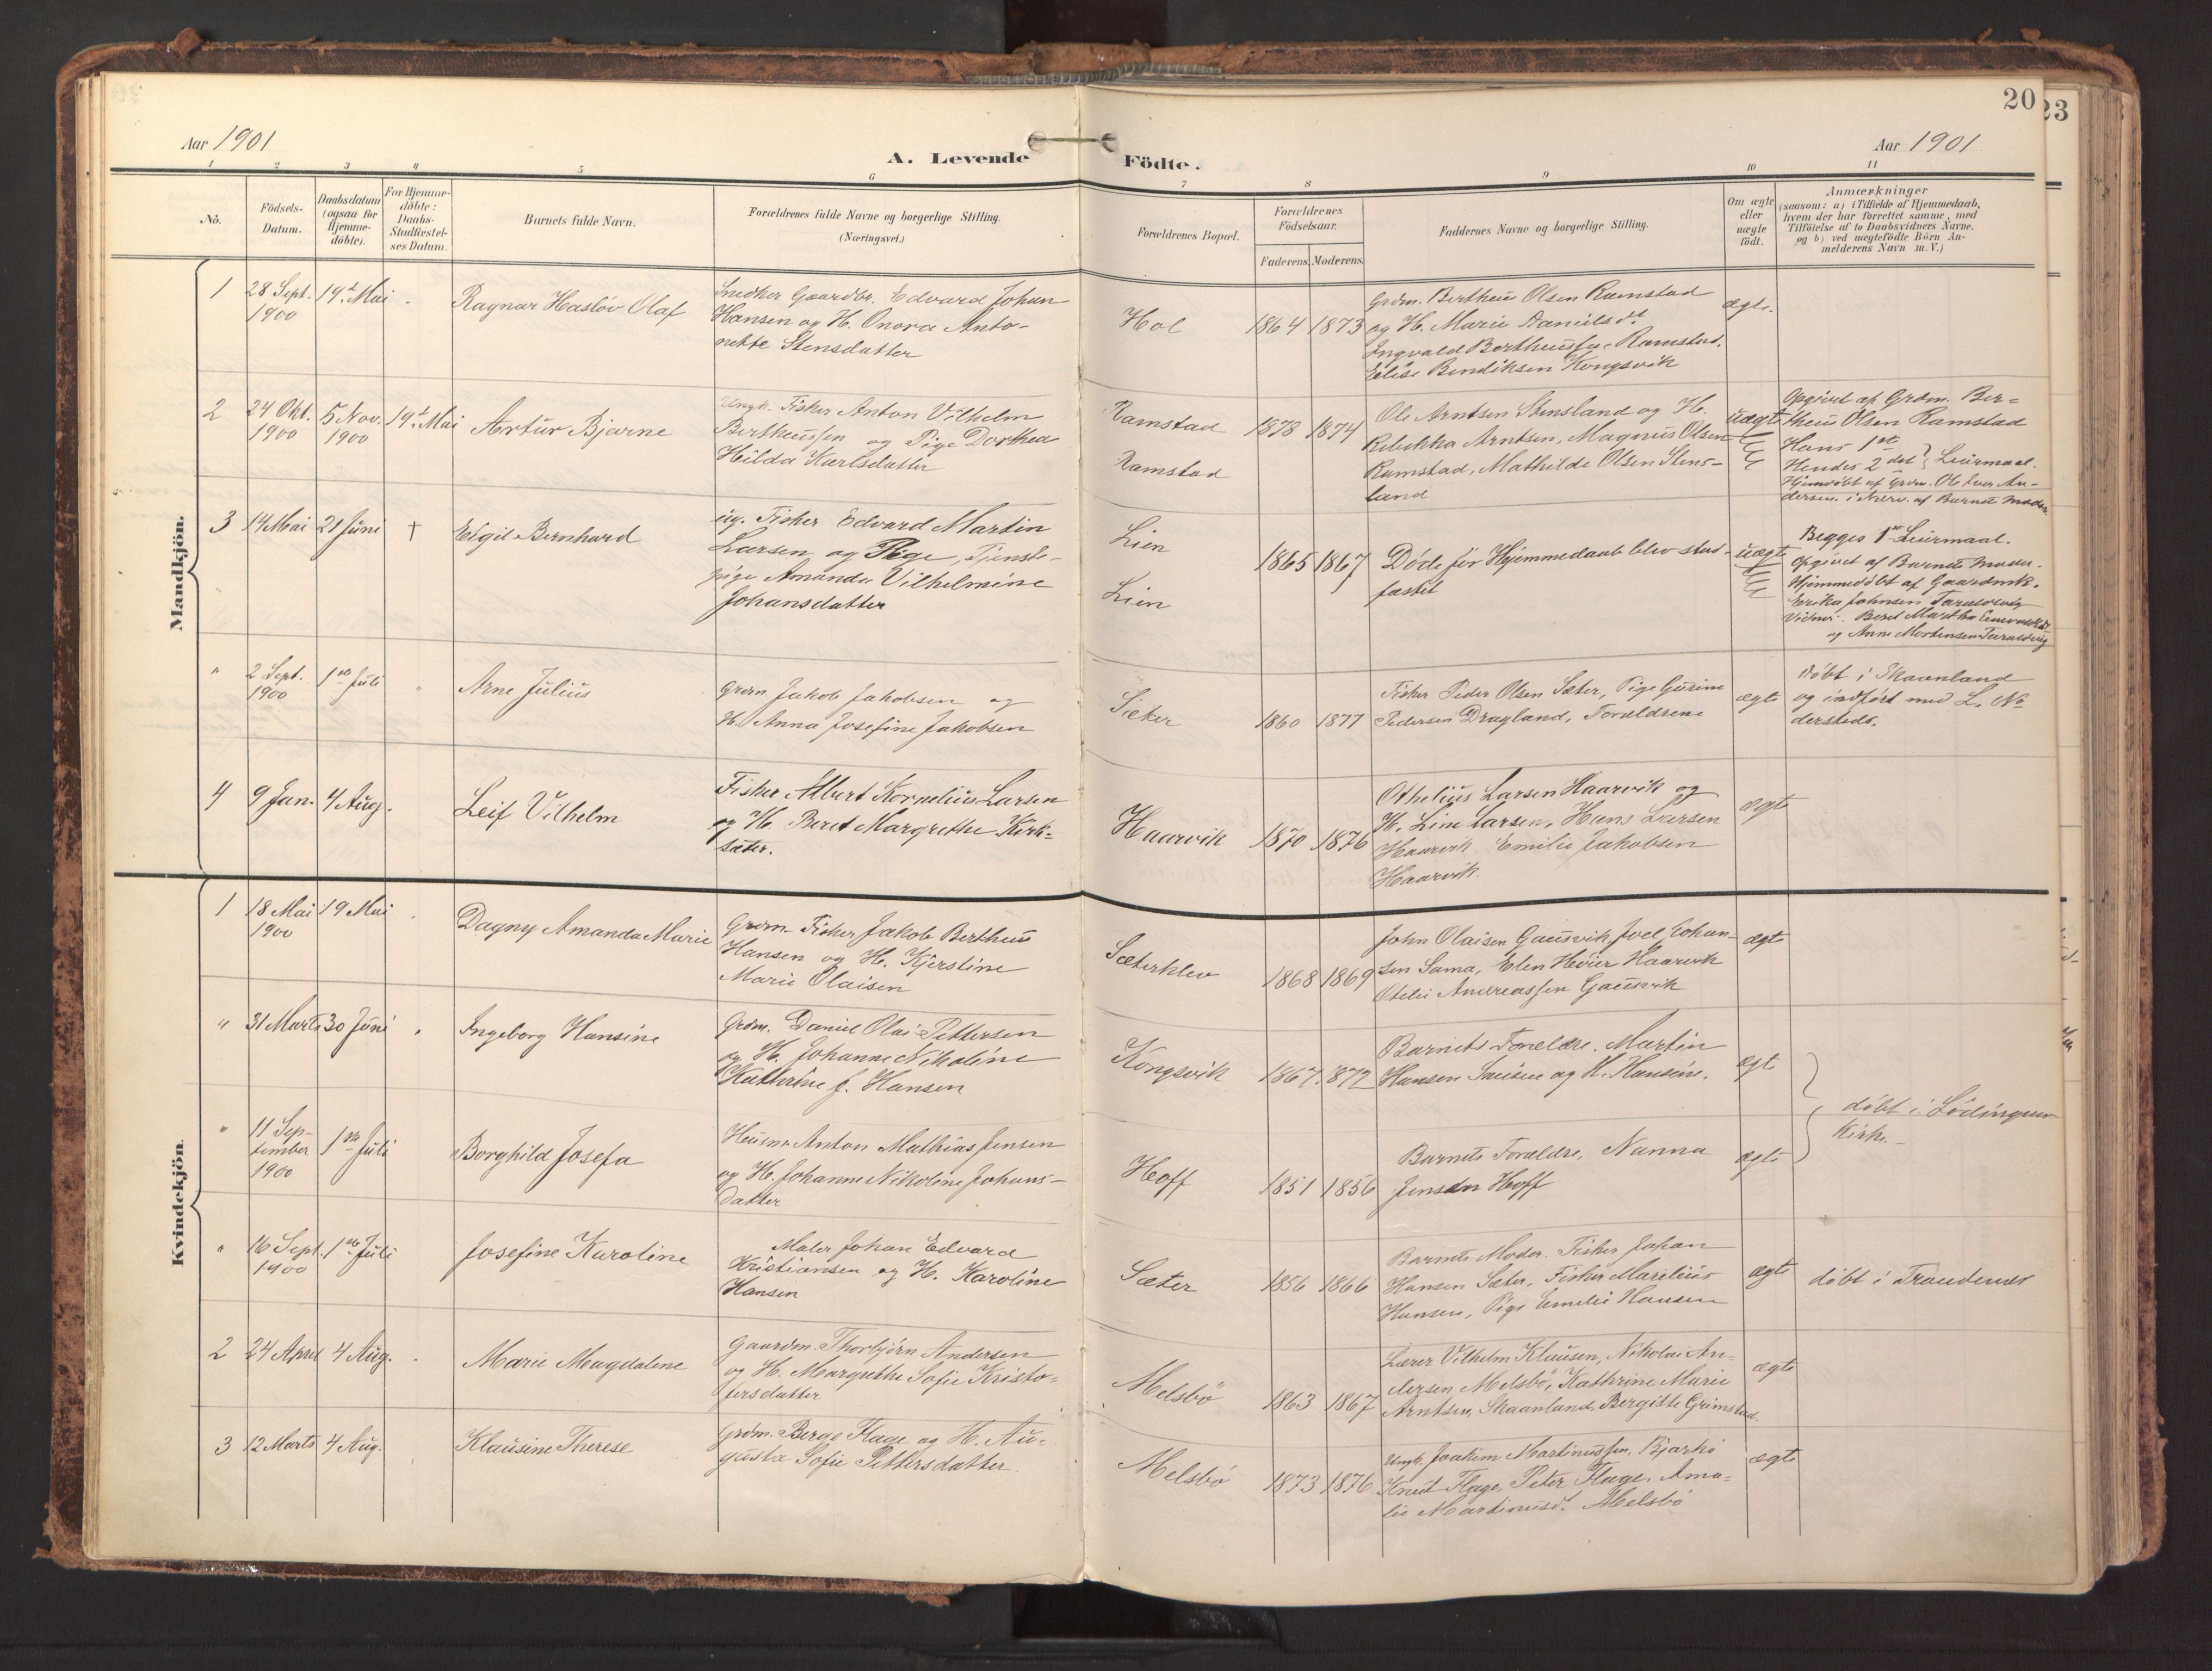 20
23
Aar 1901
A. Levende
Födte.
Aar 1901
1 2 3 4 5 6 7 8 9 10 11
Nö.
Födsels-
Datum.
Daabsdatum
(ogsaa for
Hjemme-
döbte).
For Hjemme-
döbte:
Daabs-
Stadfæstel-
ses Datum.
Barnets fulde Navn.
Forældrenes fulde Navne og borgerlige Stilling.
(Næringsvei.)
Forældrenes Bopæl.
Forældrenes
Födselsaar.
Faderens. Moderens.
Faddernes Navne og borgerlige Stilling.
Om ægte
eller
uægte
födt.
Anmærkninger
(saasom: a) i Tilfælde af Hjemmedaab,
hvem der har forrettet samme, med
Tilföielse af to Daabsvidners Navne,
og b) ved uægtefödte Börn An-
melderens Navn m. V.)
Mandkjön.
1
28 Sept.
1900
19de Mai
Ragnar Hasløv Olaf
Snedker Gaardbr. Edvard Johan
Hansen og H. Onora Anto-
nette Stensdatter
Hol
1864
1873
Grdm. Bertheus Olsen Ramstad
og H. Marie Danielsdt.
Ingvald Bertheussen Ramstad,
Elise Bendiksen Kongsvik
ægte.
2
24 Okt.
1900
5 Nov.
1900
19de Mai
Artur Bjarne
Ungk. Fisker Anton Vilhelm
Bertheussen og Pige Dorthea
Hilda Karlsdatter
Ramstad
Ramstad
1878
1874
Ole Arntsen Stensland og H.
Rebekka Arntsen, Magnus Olsen
Ramstad, Mathilde Olsen Stens-
land
uægte
Opgivet af Grdm. Ber=
theus Olsen Ramstad
Hans 1ste
Hendes 2det } Leiermaal.
Hjemdöbt af Grdm. Ole Iver An-
dersen i Nærv. af Barnets Moder.
3
14 Mai
21 Juni
†
Eigil Bernhard
ug. Fisker Edvard Martin
Larsen og Pige, Tjenste-
pige Amanda Vilhelmine
Johansdatter
Lien
Lien
1865
1867
Døde før Hjemmedaab blev stad-
fæstet
uægte
Begges 1ste Leiermaal.
Opgivet af Barnets Moder.
Hjemmedöbt af Gaardmk.
Erika Johnsen Taraldsvig
Vidner: Beret Martha
og Anne Mortensen Taraldsvig
"
2 Sept.
1900
1ste Juli
Arne Julius
Grdm. Jakob Jakobsen og
H. Anna Josefine Jakobsen
Sæter
1860
1877
Fisker Peder Olsen Sæter, Pige Gurine
Pedersen Dragland, Forældrene
ægte
Döbt i Skaanland
og indført med L. No
dersteds.
4
9 Jan.
4 Aug.
Leif Vilhelm
Fisker Albert Kornelius Larsen
og H. Beret Margrethe Kirk-
sæter.
Haarvik
1870
1876
Othelius Larsen Haarvik og
H. Line Larsen, Hans Larsen
Haarvik Emilie Jakobsen
Haarvik.
ægte
Kvindekjön.
1
18 Mai
1900
19 Mai
Dagny Amanda Marie
Grdm. Fisker Jakob Bertheus
Hansen og H. Kjerstine
Marie Olaisen
Sæterklev
1868
1869
John Olaisen Gausvik, Joel Johan-
sen Sama, Elen Høier Haarvik
Otelie Andreassen Gausvik
ægte
"
31 Marts
30 Juni
Ingeborg Hansine
Grdm. Daniel Olai Pettersen
og H. Johanne Nikoline
Kathrine f. Hansen
Kongsvik
1867
1872
Barnets Forældre. Martin
Hansen og H. Hansine.
ægte
döbt i Lödingen
Kirke
"
11 Sep-
tember
1900
1ste Juli
Borghild Josefa
Husm. Anton Mathias Jensen
og H. Johanne Nikoline Johans-
datter
Hoff
1851
1856
Barnets Forældre, Nanna
Jensen Hoff
ægte
"
16 Sept.
1900
1ste Juli
Josefine Karoline
Maler Johan Edvard
Kristiansen og H. Karoline
Hansen
Sæter
1856
1866
Barnets Moder. Fisker Johan
Hansen Sæter, Fisker Marelius
Hansen, Pige Emelie Hansen
ægte
döbt i Trondenæs
2
24 April
4 Aug.
Marie Magdalene
Gaardm. Thorbjörn Andersen
og H. Margrethe Sofie Kristo-
fersdatter
Melsbö
1863
1867
Lærer Vilhelm Klausen, Nikolai An-
dersen Melsbö, Kathrine Marie
Arntsen, Skaanland, Bergitte Grimstad.
ægte
3
12 Marts
4 Aug.
Klausine Therese
Grdm. Berge Flage og H. Au-
gusta Sofie Pettersdatter.
Melsbö
1873
1876
Ungk. Joakim Martinussen, Bjarkö
Knut Flage, Peter Flage, Ama-
lie Martinusdt. Melsbö
ægte